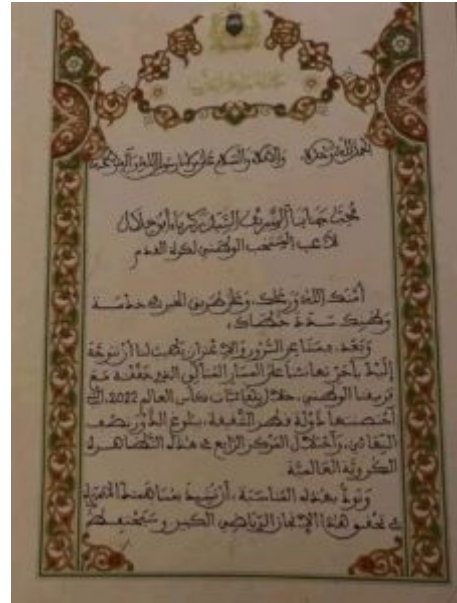 الحمد لله وحده، والصلاة والسلام على مولانا رسول الله وآله وصحبه
محب جنابنا الشريف السيد زكرياء أبو خلال
لاعب المنتخب الوطني لكرة القدم
أمنك الله ورعاك، وعلى طريق الخير في خدمة
وطنك سدد خطاك،
وبعد، فمشاعر السرور والاعتزاز يطيب لنا أن نتوجه
إليك بأحر تهانئنا على المسار المتألق الذي حققته مع
فريقنا الوطني، خلال نهائيات كأس العالم 2022، التي
احتضنتها دولة قطر الشقيقة، ببلوغ الدور نصف
النهائي، واحتلال المركز الرابع في هذه التظاهرة
الكروية العالمية
ونود بهذه المناسبة، أن نشيد بمساهمتك
في تحقيق هذا الإنجاز الرياضي الكبير و